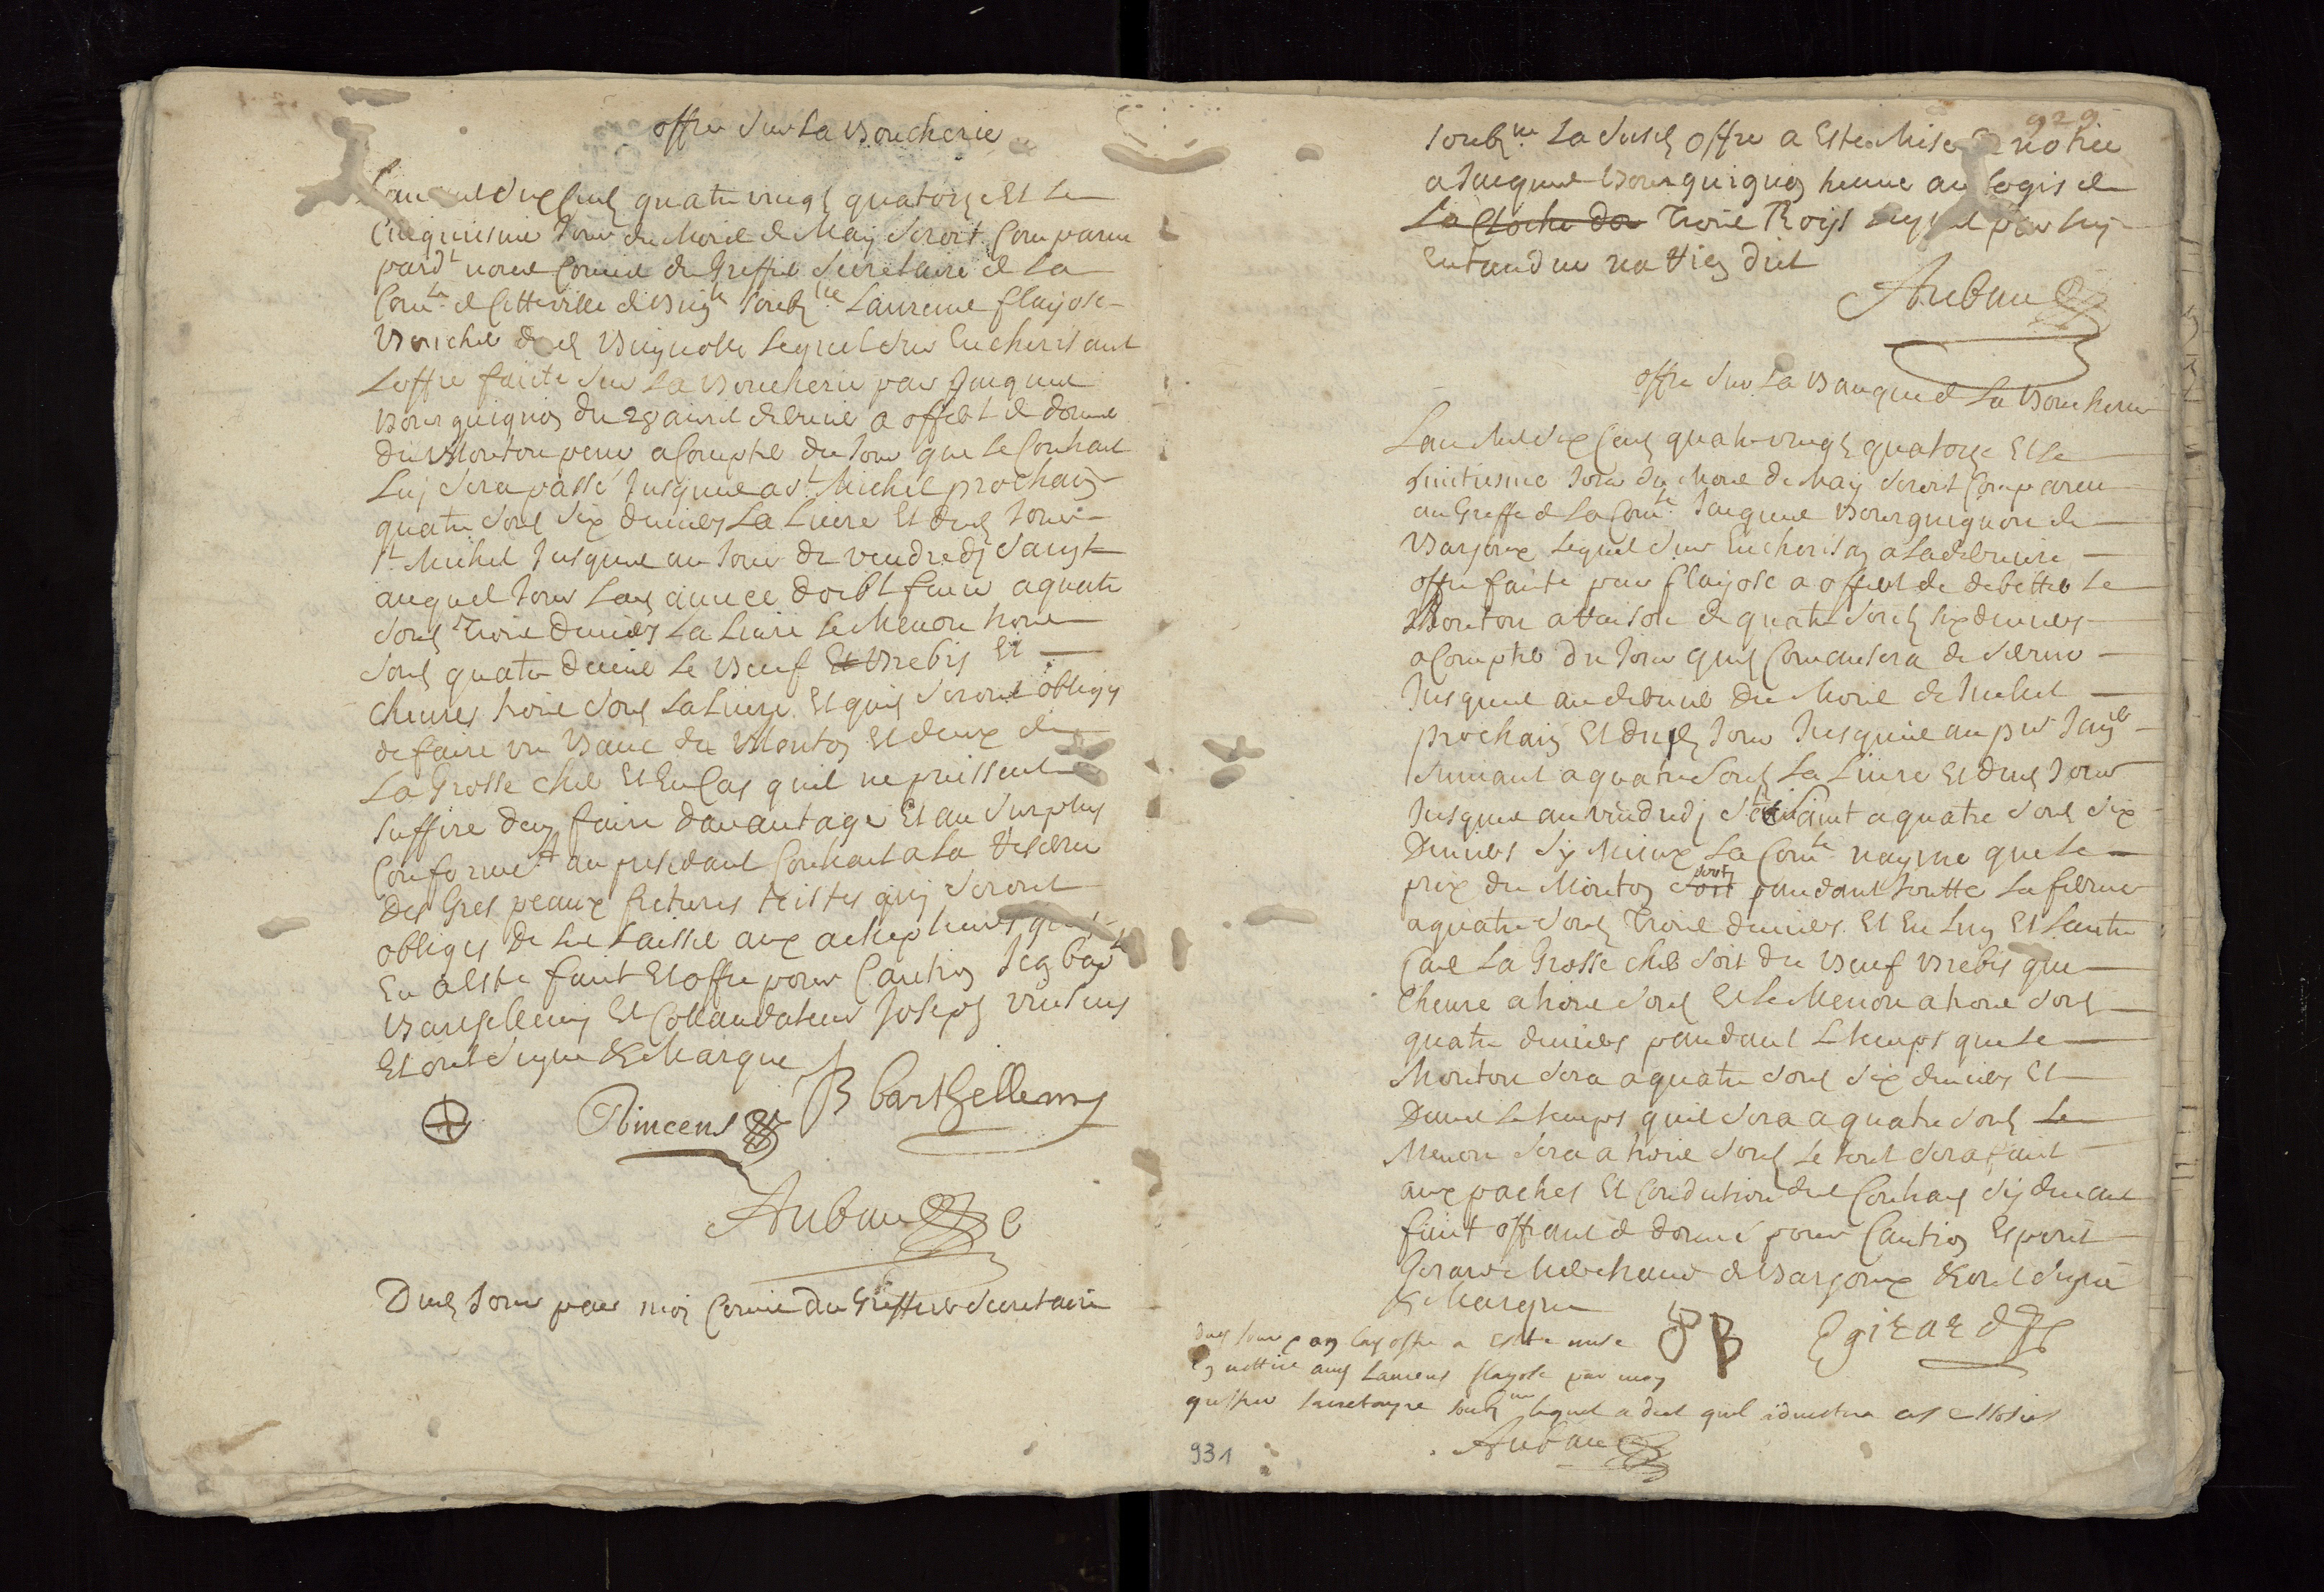 offre sur La Boucherie
Lan mil six cens quatre vingt quatorze Et Le
Cinquiesme Jour du Mois de May seroit Comparu
pard.t nous Commis du Greffier secretaire de La
Com.te de Cette ville de soub.ne Laurens flayosc
Boucher dud Lequel sur Encherissant
Loffre faicte sur La Boucherie par Jacques
Bourguignon du 28 avril dernier a offert de donner
du Mouton pour a Compter du Jour que le Contract
Luy sera passé Jusques a s.t Michel prochain
quatre sous six deniers La Livre Et dud Jour
s.t Michel Jusques au Jour de vendredy sainct
auquel Jour Lad année doibt finir a quatre
sous Trois deniers La Livre Le Menon trois
sous quatre deniers Le Beuf Et Brebis Et
Cheures trois sous La Livre Et quils seront obligés
de faire un Banc de Mouton Et deux de
La Grosse Chair Et En Cas quil ne puissent
suffire den faire davantage Et au surplus
Conformem.t au precedant Contract a La Reserve
des Gres peaux fretures testes quy seront
obligés de Les Laisser aux achepteurs
En a Este faict Et offre pour Caution Jean bap.te
Barthellemy Et Collaudateur Joseph vincens
Et ont signé & Marque
Vincens B barthellemy
Auban
Dud Jour par moy Commis du Greffier Secretaire
929
soub.ne La susd Offre a Esté Mise En notice
a Jacques Bourguignon treuve au Logis de
La Cloche dor Trois Roys Lequel par luy
Entandue na Rien dict
Auban
offre sur La Banque de La Boucherie
Lan Mil six Cens quatre vingt quatorze Et Le
huictiesme Jour du Mois de May seroit Compareu
au Greffe de La Com.te Jacques Bourguignon de
Barjoux Lequel sur Encherissan a La derniere
offre faicte par flayosc a offert de debitter Le
Mouton a Raison de quatre sous six deniers
a Compter du Jour quil Commansera de servir
Jusques au dernier du Mois de Juillet
prochain Et dud Jour Jusques au p.er Janv.er
suivant a quatre sous La Livre Et dud Jour
Jusques au vendredy sainct a quatre sous six
Deniers sy Mieux La Com.te nayme que Le
prix du Mouton soit soit pandant toutte La ferme
a quatre sous Trois deniers Et En Lun Et Lautre
Cas La Grosse Cher soit du Beuf Brebis que
Cheure a trois sous Et Le Menon a trois sous
quatre deniers pandant Le temps que Le
Mouton sera a quatre sous six deniers Et
Durant Le temps quil sera a quatre sous Le
Menon sera a trois sous Le tout sera faict
aux paches Et Condictions des Contracs sy devant
faict offrant de donner pour Caution Esperit
Gerard Merchant de Barjoux & ont signé
& Marque
JB E girard
dud Jour et an lad offre a Esté mise
En nottice aud Laurens flayosc par moy
greffier Secretayre soub.ne lequel a dict quil
Auban
931